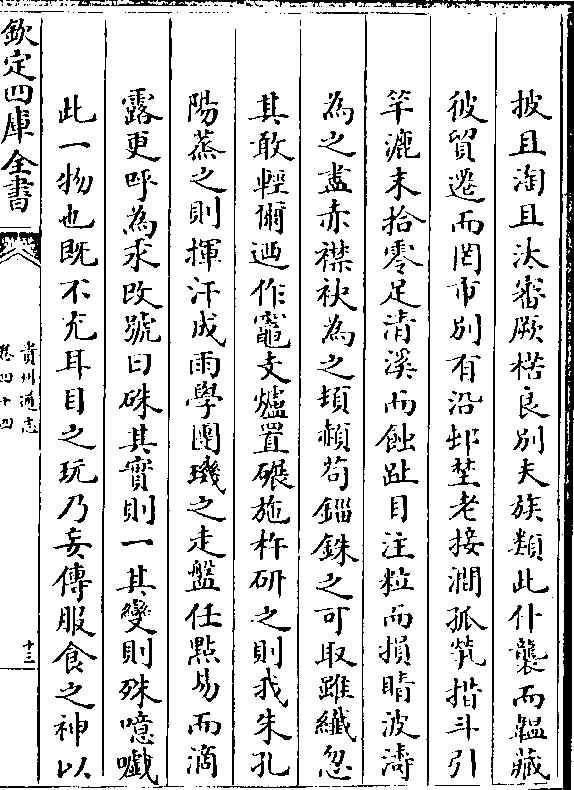 披且淘且汰審厥楛良別夫族類此什襲而韞藏
彼貿遷而罔市別有沿邨埜老接澗孤煢揩斗引
竿漉末拾零足清溪而蝕趾目注粒而損睛波濤
為之盡赤襟袂為之頳赬苟錙銖之可取雖纖忽
其敢輕爾迺作竈支爐置碾施杵研之則我朱孔
陽蒸之則揮汗成雨學團璣之走盤任㸃易而滴
露更呼為汞改號曰硃其實則一其變則殊噫嚱
此一物也既不充耳目之玩乃妄傳服食之神以
欽定四庫全書
貴州通志
卷四十四
十三